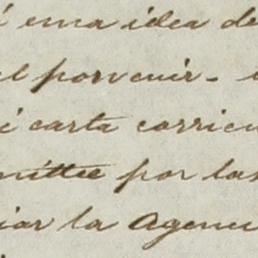 i una idea de
el porvenir.
i carta corrien
mittee por las
iar la Agenci